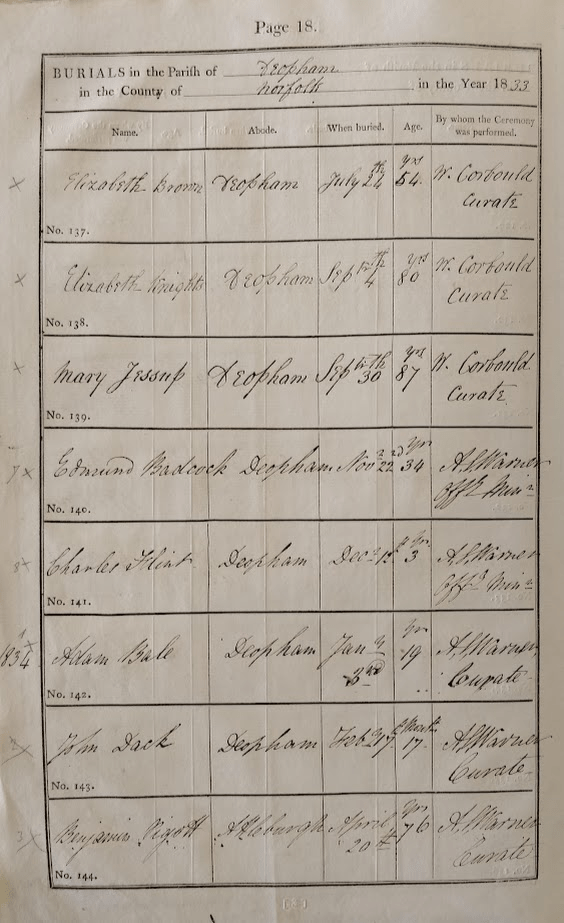 Page 18.
BURIALS in the Parish of Deopham
in the County of Norfolk in the Year 1833
Name. Abode. When buried. Age. By whom the Ceremony was performed.
Elizabeth Brown Deopham July 24th 54 yrs W. Corbould Curate
No. 137.
Elizabeth Knights Deopham Septr 4th 80 yrs W. Corbould Curate
No. 138.
Mary Jessup Deopham Septr 30th 87 yrs W. Corbould Curate
No. 139.
7 x Edmund Badcock Deopham Novr 22nd 34 yrs A. Warner Offg Minr
No. 140.
8 x Charles Flint Deopham Decr 1st 3 yrs A. Warner Offg Minr
No. 141.
1834 Adam Bale Deopham Jany 3rd 19 yrs A. Warner Curate
No. 142.
John Dack Deopham Feby 17 17 Months A. Warner Curate
No. 143.
3 x Benjamin Pigott Attleburgh April 20th 76 yrs A. Warner Curate
No. 144.